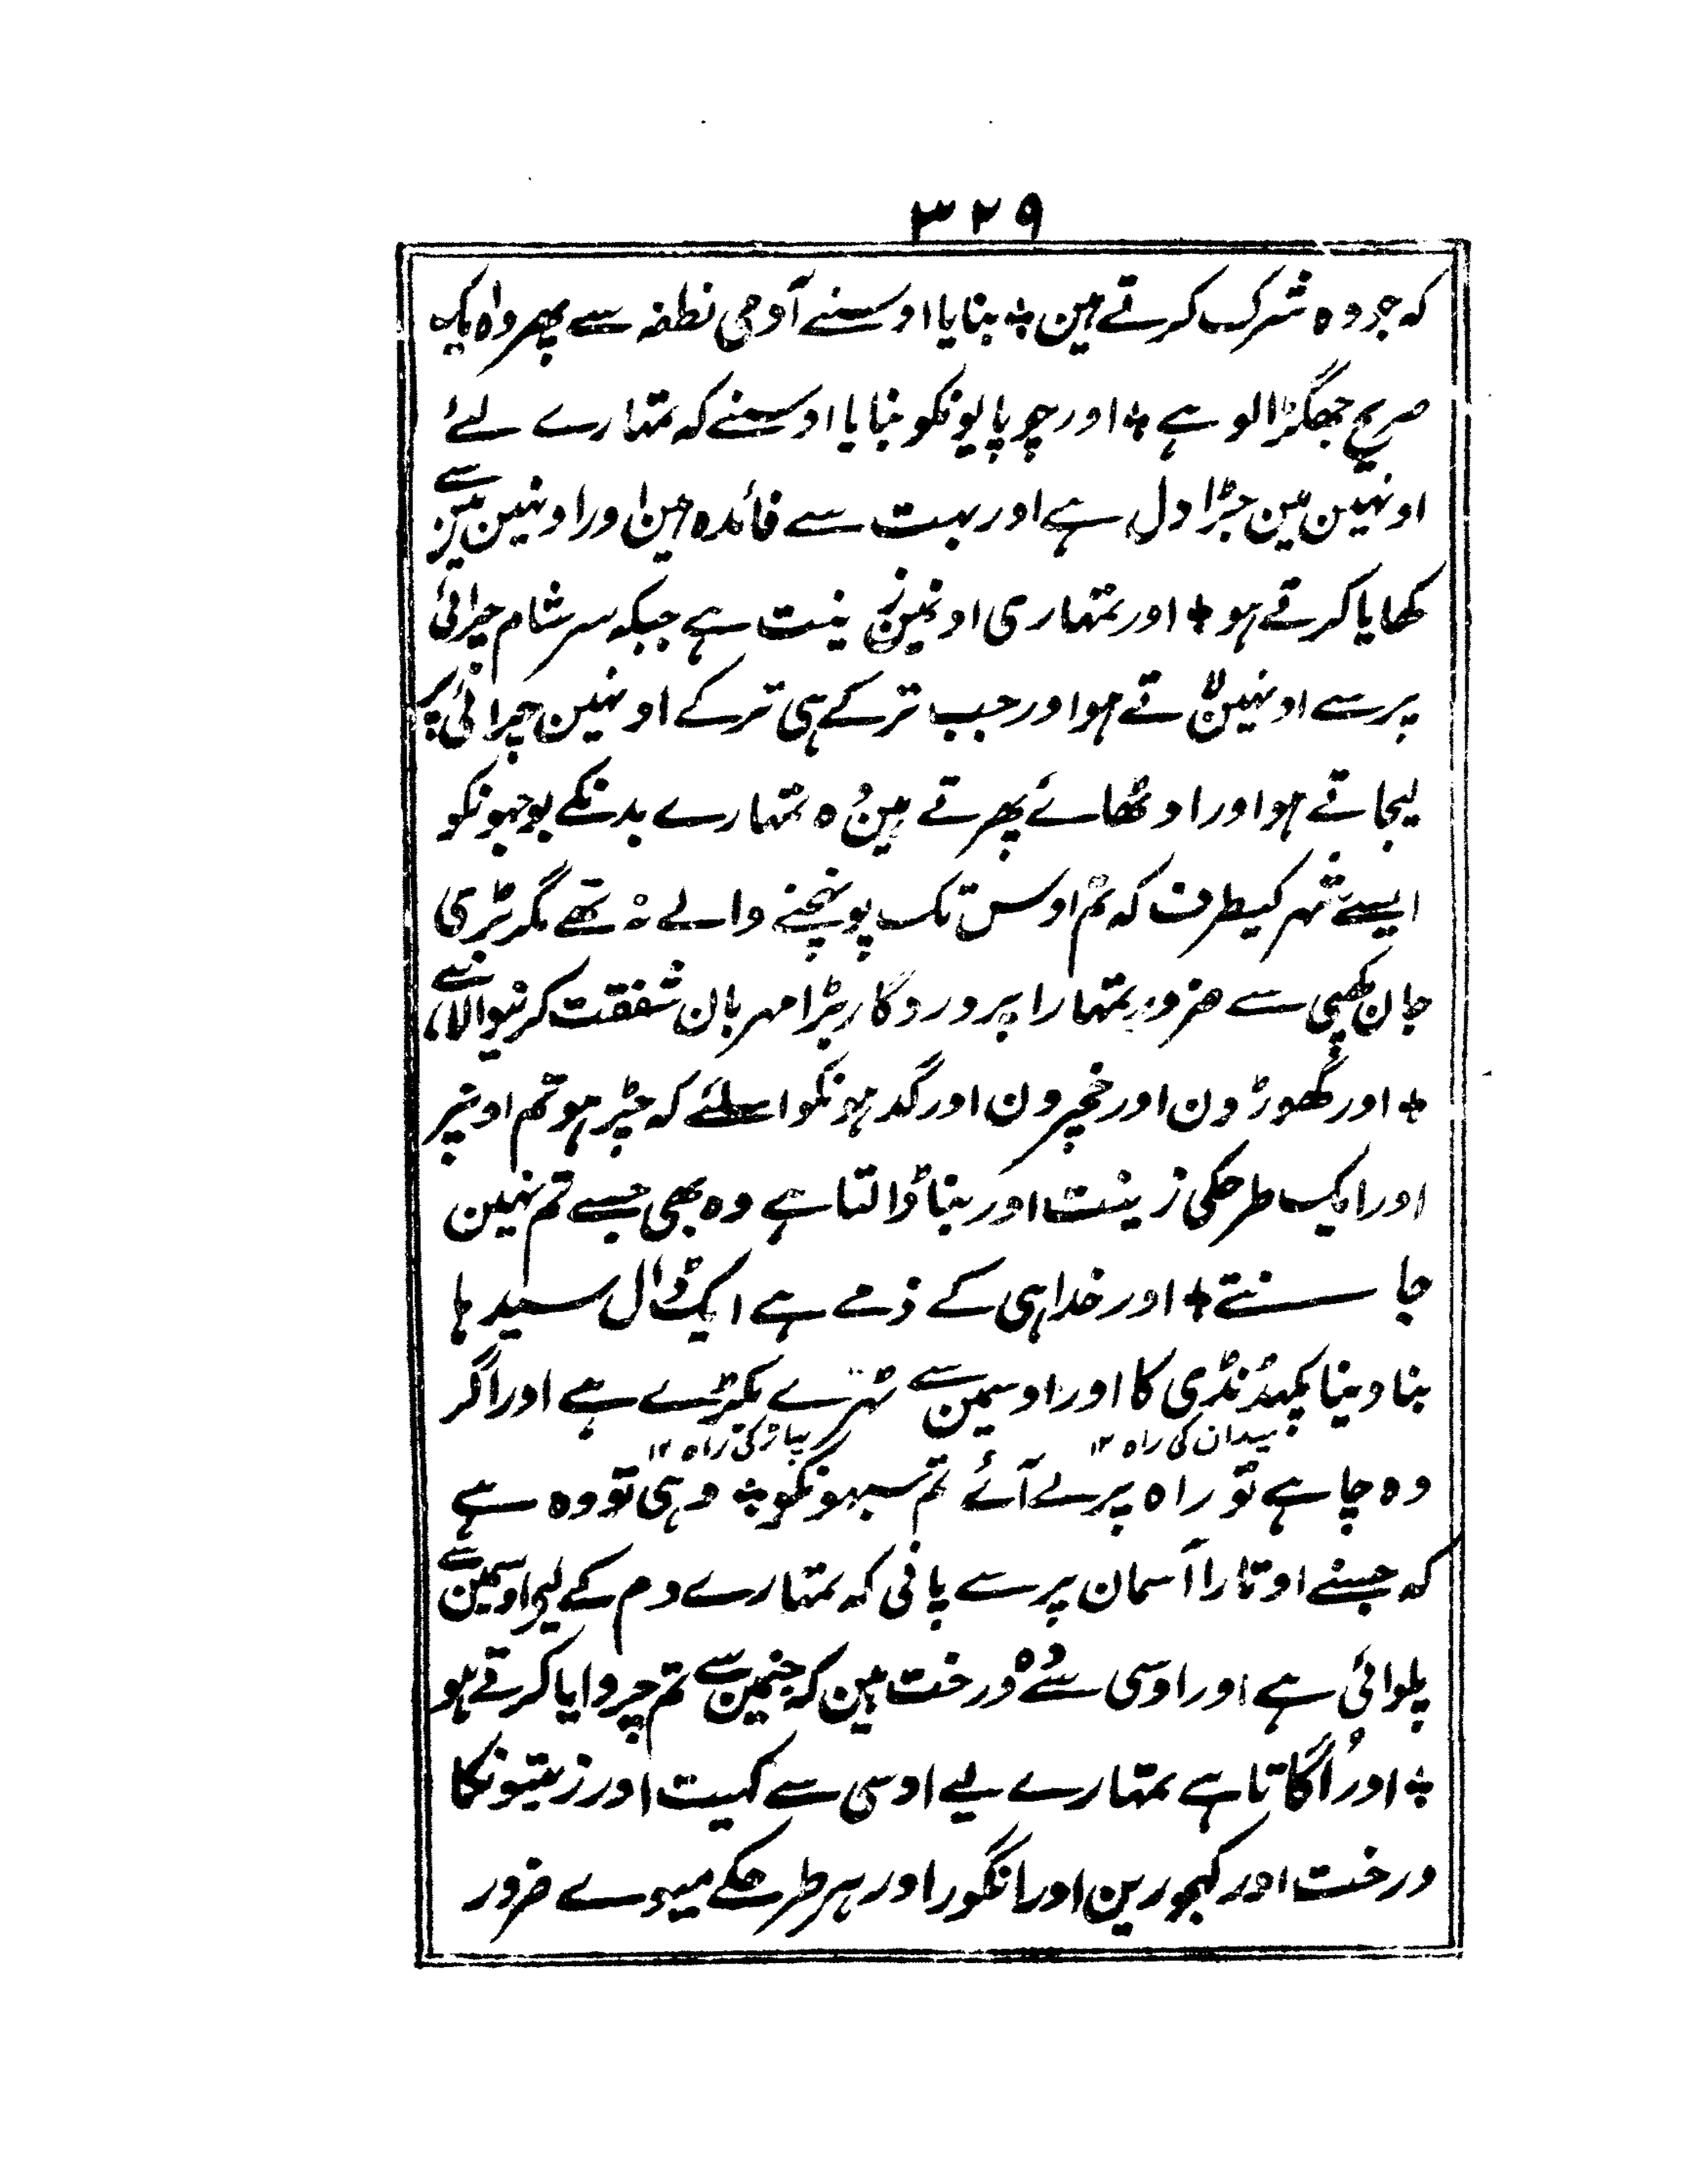 ۳۲۹
کہ جو وہ شرک کرتے ہین ۞ بنایا اوسنے آدمی نطفہ سے پھر وہ ایک
صریح جھگڑالو ہے ۞ اور چوپایونکو بنایا اوسنے کہ تمہارے لئے
اونہین مین جڑاول ہے اور بہت سے فائدہ ہین اور اونہین مین سے
کھایا کرتے ہو ۞ اور تمہاری اونمین زینت ہے جبکہ سر شام چرائی
پر سے اونہین لاتے ہو اور جب ترکے ہی ترکے اونہین چرائی پر
لیجاتے ہو اور اوٹھائے پھرتے ہین وہ تمہارے بدنکے بوجہونکو
ایسے شہر کیطرف کہ تم اوس تک پونہچنے والے نہ تھے مگر بڑی
جان کھپی سے ضرور تمہارا پروردگار بڑا مہربان شفقت کرنیوالا ہے
۞ اور گھوڑون اور خچرون اور گدہونکو اسلئے کہ چڑہو تم اونپر
اور ایک طرحکی زینت اور بنا ڈالتا ہے وہ بھی جسے تم نہین
جانتے ۞ اور خدا ہی کے ذمے ہے ایک ڈال سیدہا
بنا دینا پگہڈنڈی کا اور اوسمین سے ٹہڑے بکڑے ہے اور اگر
میدان کی راہ ۱۲ پہاڑ کی راہ ۱۲
وہ چاہے تو راہ پر لے آئے تم سبہونکو ۞ وہی تو وہ ہے
کہ جسنے اوتارا آسمان پر سے پانی کہ تمہارے دم کے لیے اوسمین سے
پلوائی ہے اور اوسی سے وہ درخت ہین کہ جنمین سے تم چروایا کرتے ہو
۞ اور اُگاتا ہے تمہارے لیے اوسی سے کہیت اور زیتونکا
درخت اور کہجورین اور انگور اور ہر طرحکے میوے ضرور